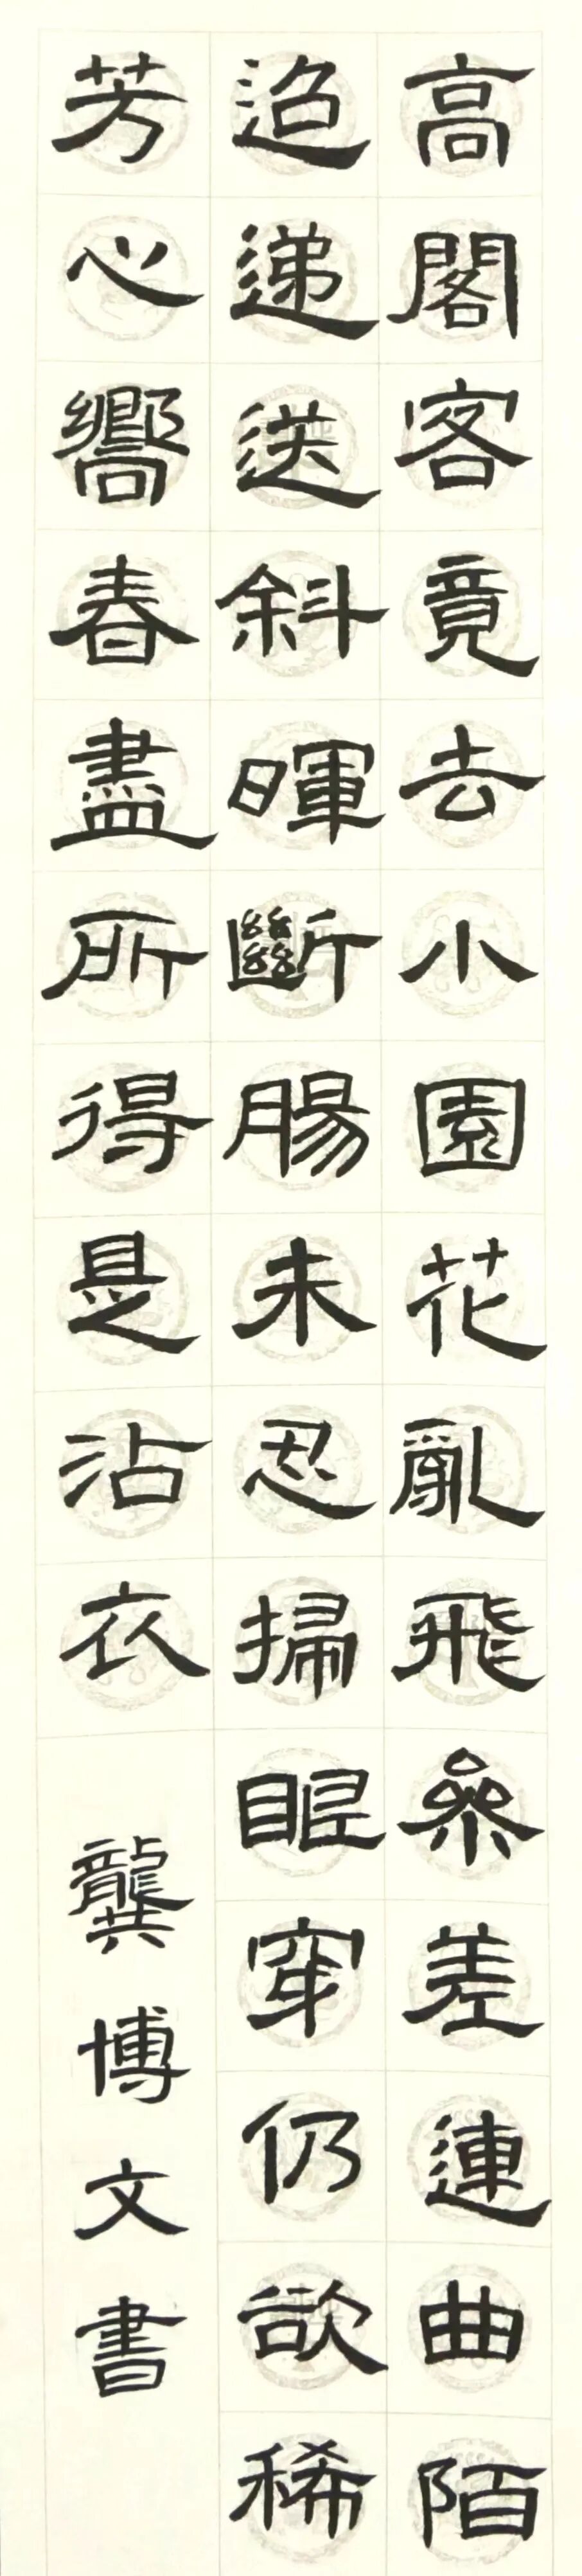 高閣客竟去小園花亂飛參差連曲陌
迨遞送斜暉斷腸未忍掃眼穿仍欲稀
芳心嚮春盡所得是沾衣
龔博文書